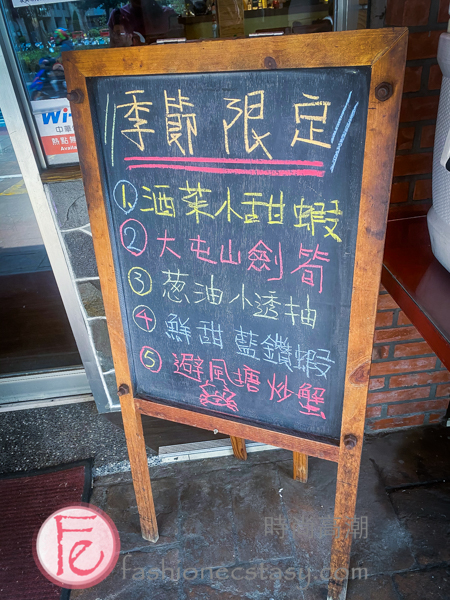 季節限定
1. 酒菜小甜蝦
2 大屯山劍筍
3 蔥油小透抽
4 鮮甜藍鑽蝦
5 避風塘炒蟹
Wi
中華
熱點
Availa
Fe
fashionecstasy.com